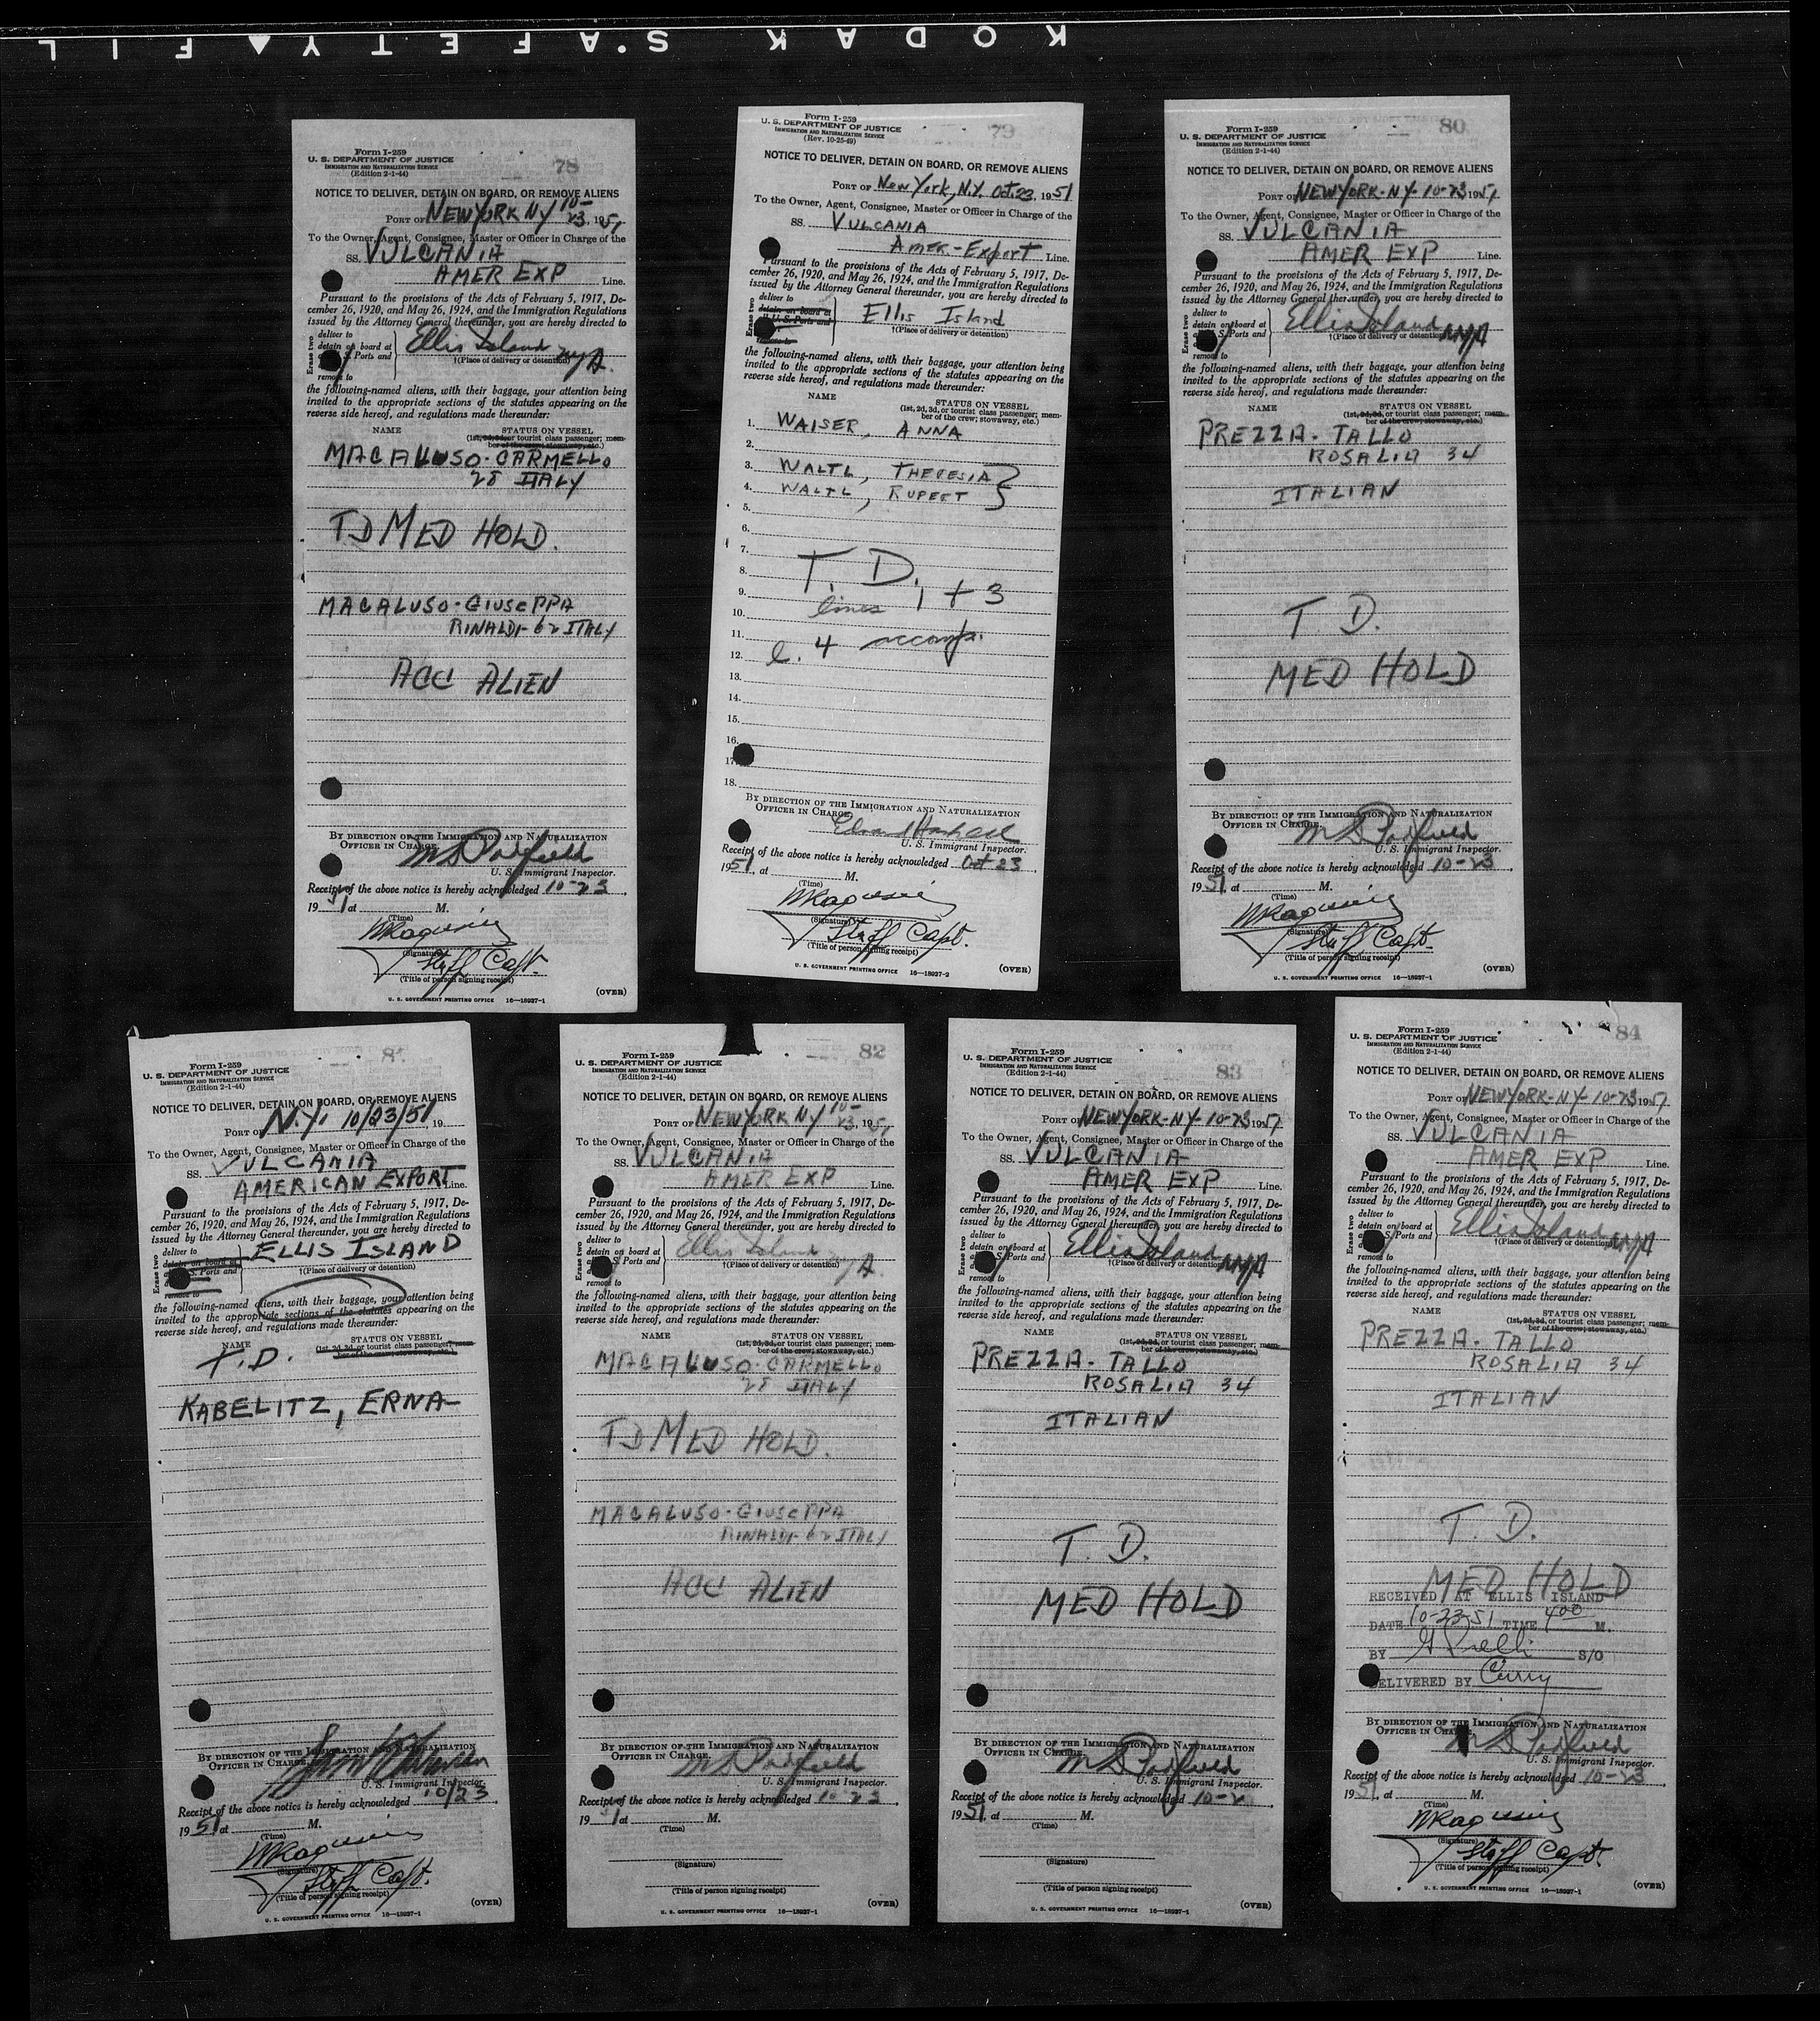 KODAK SAFETY FIL
Form I-259
U. S. DEPARTMENT OF JUSTICE
IMMIGRATION AND NATURALIZATION SERVICE
(Edition 2-1-44)
78
NOTICE TO DELIVER, DETAIN ON BOARD, OR REMOVE ALIENS
PORT OF NEW YORK NY 10-23, 1951
To the Owner, Agent, Consignee, Master or Officer in Charge of the
SS. VULCANIA
AMER EXP Line.
Pursuant to the provisions of the Acts of February 5, 1917, De-
cember 26, 1920, and May 26, 1924, and the Immigration Regulations
issued by the Attorney General thereunder, you are hereby directed to
Erase two
deliver to
detain on board at
S. Ports and
remove to
Ellis Island
†(Place of delivery or detention)
the following-named aliens, with their baggage, your attention being
invited to the appropriate sections of the statutes appearing on the
reverse side hereof, and regulations made thereunder:
NAME STATUS ON VESSEL
(1st, 2d, 3d, or tourist class passenger; mem-
ber of the crew; stowaway, etc.)
MACALUSO - CARMELLO
28 ITALY
TD MED HOLD.
MACALUSO - GIUSEPPA
RINALDI - 62 ITALY
ACC ALIEN
BY DIRECTION OF THE IMMIGRATION AND NATURALIZATION
OFFICER IN CHARGE.
U. S. Immigrant Inspector.
Receipt of the above notice is hereby acknowledged 10-23,
1951 at M.
(Time)
(Signature)
Staff Capt.
(Title of person signing receipt)
U. S. GOVERNMENT PRINTING OFFICE 16—18927-1
(OVER)
Form I-259
U. S. DEPARTMENT OF JUSTICE
IMMIGRATION AND NATURALIZATION SERVICE
(Rev. 10-25-49)
79
NOTICE TO DELIVER, DETAIN ON BOARD, OR REMOVE ALIENS
PORT OF New York, N.Y. Oct. 23 1951
To the Owner, Agent, Consignee, Master or Officer in Charge of the
SS. VULCANIA
Amer-Export Line.
Pursuant to the provisions of the Acts of February 5, 1917, De-
cember 26, 1920, and May 26, 1924, and the Immigration Regulations
issued by the Attorney General thereunder, you are hereby directed to
Erase two
deliver to
detain on board at
U. S. Ports and
remove to
Ellis Island
†(Place of delivery or detention)
the following-named aliens, with their baggage, your attention being
invited to the appropriate sections of the statutes appearing on the
reverse side hereof, and regulations made thereunder:
NAME STATUS ON VESSEL
(1st, 2d, 3d, or tourist class passenger; mem-
ber of the crew; stowaway, etc.)
1. WAISER, ANNA
2.
3. WALTL, THERESIA
4. WALTL, RUPERT
5.
6.
7.
8. T. D. 1 + 3
9. lines
10.
11. l. 4 accomp.
12.
13.
14.
15.
16.
17.
18.
BY DIRECTION OF THE IMMIGRATION AND NATURALIZATION
OFFICER IN CHARGE.
U. S. Immigrant Inspector.
Receipt of the above notice is hereby acknowledged Oct 23
1951, at M.
(Time)
(Signature)
Staff Capt.
(Title of person signing receipt)
U. S. GOVERNMENT PRINTING OFFICE 16—18927-2
(OVER)
Form I-259
U. S. DEPARTMENT OF JUSTICE
IMMIGRATION AND NATURALIZATION SERVICE
(Edition 2-1-44)
80
NOTICE TO DELIVER, DETAIN ON BOARD, OR REMOVE ALIENS
PORT OF NEW YORK - NY - 10-23 1951
To the Owner, Agent, Consignee, Master or Officer in Charge of the
SS. VULCANIA
AMER EXP Line.
Pursuant to the provisions of the Acts of February 5, 1917, De-
cember 26, 1920, and May 26, 1924, and the Immigration Regulations
issued by the Attorney General thereunder, you are hereby directed to
Erase two
deliver to
detain on board at
S. Ports and
remove to
Ellis Island
†(Place of delivery or detention)
the following-named aliens, with their baggage, your attention being
invited to the appropriate sections of the statutes appearing on the
reverse side hereof, and regulations made thereunder:
NAME STATUS ON VESSEL
(1st, 2d, 3d, or tourist class passenger; mem-
ber of the crew; stowaway, etc.)
PREZZA - TALLO
ROSALIA 34
ITALIAN
T D.
MED HOLD
BY DIRECTION OF THE IMMIGRATION AND NATURALIZATION
OFFICER IN CHARGE.
U. S. Immigrant Inspector.
Receipt of the above notice is hereby acknowledged 10-23
1951, at M.
(Time)
(Signature)
Staff Capt.
(Title of person signing receipt)
U. S. GOVERNMENT PRINTING OFFICE 16—18927-1
(OVER)
Form I-259
U. S. DEPARTMENT OF JUSTICE
IMMIGRATION AND NATURALIZATION SERVICE
(Edition 2-1-44)
NOTICE TO DELIVER, DETAIN ON BOARD, OR REMOVE ALIENS
PORT OF N.Y. 10/23/51 19
To the Owner, Agent, Consignee, Master or Officer in Charge of the
SS. VULCANIA
AMERICAN EXPORT Line.
Pursuant to the provisions of the Acts of February 5, 1917, De-
cember 26, 1920, and May 26, 1924, and the Immigration Regulations
issued by the Attorney General thereunder, you are hereby directed to
Erase two
deliver to
detain on board at
S. Ports and
remove to
ELLIS ISLAND
†(Place of delivery or detention)
the following-named aliens, with their baggage, your attention being
invited to the appropriate sections of the statutes appearing on the
reverse side hereof, and regulations made thereunder:
NAME STATUS ON VESSEL
(1st, 2d, 3d, or tourist class passenger; mem-
ber of the crew; stowaway, etc.)
T.D.
KABELITZ, ERNA
BY DIRECTION OF THE IMMIGRATION AND NATURALIZATION
OFFICER IN CHARGE.
U. S. Immigrant Inspector.
Receipt of the above notice is hereby acknowledged 10/23
1951 at M.
(Time)
(Signature)
Staff Capt.
(Title of person signing receipt)
U. S. GOVERNMENT PRINTING OFFICE 16—18927-1
(OVER)
Form I-259
U. S. DEPARTMENT OF JUSTICE
IMMIGRATION AND NATURALIZATION SERVICE
(Edition 2-1-44)
82
NOTICE TO DELIVER, DETAIN ON BOARD, OR REMOVE ALIENS
PORT OF NEW YORK NY 10-23, 1951
To the Owner, Agent, Consignee, Master or Officer in Charge of the
SS. VULCANIA
AMER EXP Line.
Pursuant to the provisions of the Acts of February 5, 1917, De-
cember 26, 1920, and May 26, 1924, and the Immigration Regulations
issued by the Attorney General thereunder, you are hereby directed to
Erase two
deliver to
detain on board at
S. Ports and
remove to
Ellis Island
†(Place of delivery or detention)
the following-named aliens, with their baggage, your attention being
invited to the appropriate sections of the statutes appearing on the
reverse side hereof, and regulations made thereunder:
NAME STATUS ON VESSEL
(1st, 2d, 3d, or tourist class passenger; mem-
ber of the crew; stowaway, etc.)
MACALUSO - CARMELLO
28 ITALY
TD MED HOLD.
MACALUSO - GIUSEPPA
RINALDI - 62 ITALY
ACC ALIEN
BY DIRECTION OF THE IMMIGRATION AND NATURALIZATION
OFFICER IN CHARGE.
U. S. Immigrant Inspector.
Receipt of the above notice is hereby acknowledged 10-23,
19 1 at M.
(Time)
(Signature)
(Title of person signing receipt)
U. S. GOVERNMENT PRINTING OFFICE 16—18927-1
(OVER)
Form I-259
U. S. DEPARTMENT OF JUSTICE
IMMIGRATION AND NATURALIZATION SERVICE
(Edition 2-1-44)
83
NOTICE TO DELIVER, DETAIN ON BOARD, OR REMOVE ALIENS
PORT OF NEW YORK - NY - 10-23 1951
To the Owner, Agent, Consignee, Master or Officer in Charge of the
SS. VULCANIA
AMER EXP Line.
Pursuant to the provisions of the Acts of February 5, 1917, De-
cember 26, 1920, and May 26, 1924, and the Immigration Regulations
issued by the Attorney General thereunder, you are hereby directed to
Erase two
deliver to
detain on board at
S. Ports and
remove to
Ellis Island
†(Place of delivery or detention)
the following-named aliens, with their baggage, your attention being
invited to the appropriate sections of the statutes appearing on the
reverse side hereof, and regulations made thereunder:
NAME STATUS ON VESSEL
(1st, 2d, 3d, or tourist class passenger; mem-
ber of the crew; stowaway, etc.)
PREZZA - TALLO
ROSALIA 34
ITALIAN
T. D.
MED HOLD
BY DIRECTION OF THE IMMIGRATION AND NATURALIZATION
OFFICER IN CHARGE.
U. S. Immigrant Inspector.
Receipt of the above notice is hereby acknowledged 10-2
1951, at M.
(Time)
(Signature)
(Title of person signing receipt)
U. S. GOVERNMENT PRINTING OFFICE 16—18927-1
(OVER)
Form I-259
U. S. DEPARTMENT OF JUSTICE
IMMIGRATION AND NATURALIZATION SERVICE
(Edition 2-1-44)
84
NOTICE TO DELIVER, DETAIN ON BOARD, OR REMOVE ALIENS
PORT OF NEW YORK - NY - 10-23 1951
To the Owner, Agent, Consignee, Master or Officer in Charge of the
SS. VULCANIA
AMER EXP Line.
Pursuant to the provisions of the Acts of February 5, 1917, De-
cember 26, 1920, and May 26, 1924, and the Immigration Regulations
issued by the Attorney General thereunder, you are hereby directed to
Erase two
deliver to
detain on board at
S. Ports and
remove to
Ellis Island
†(Place of delivery or detention)
the following-named aliens, with their baggage, your attention being
invited to the appropriate sections of the statutes appearing on the
reverse side hereof, and regulations made thereunder:
NAME STATUS ON VESSEL
(1st, 2d, 3d, or tourist class passenger; mem-
ber of the crew; stowaway, etc.)
PREZZA - TALLO
ROSALIA 34
ITALIAN
T. D.
MED HOLD
RECEIVED AT ELLIS ISLAND
DATE 10-23-51 TIME 4:00 M.
BY S/O
DELIVERED BY Curry
BY DIRECTION OF THE IMMIGRATION AND NATURALIZATION
OFFICER IN CHARGE.
U. S. Immigrant Inspector.
Receipt of the above notice is hereby acknowledged 10-23
1951, at M.
(Time)
(Signature)
Staff Capt.
(Title of person signing receipt)
U. S. GOVERNMENT PRINTING OFFICE 16—18927-1
(OVER)